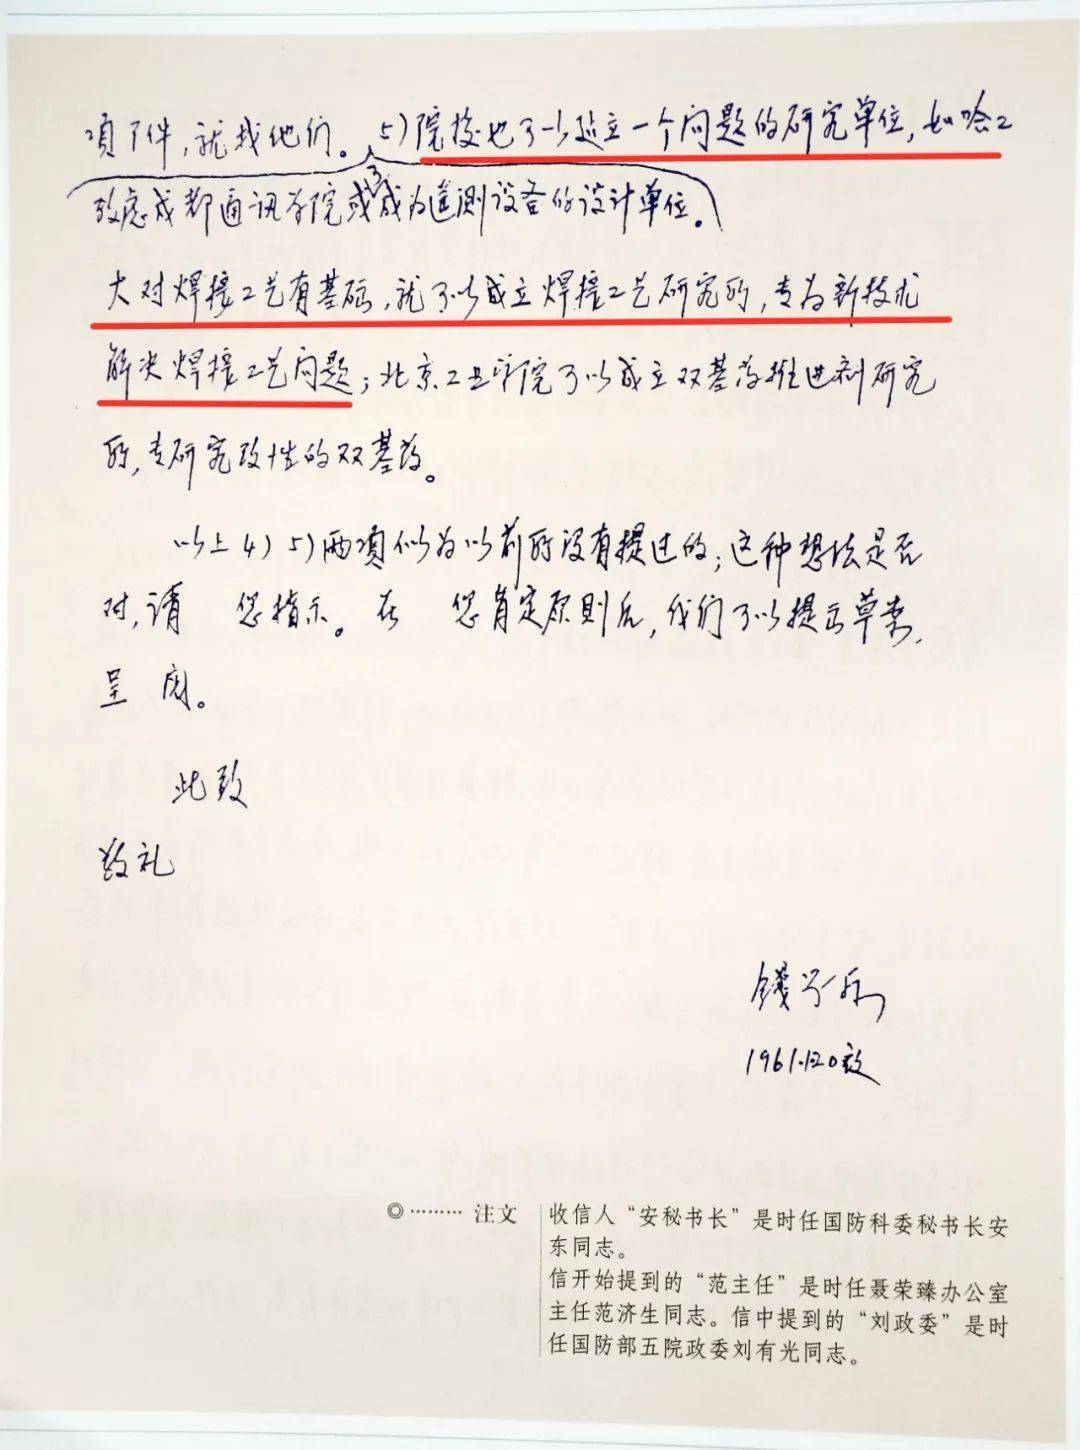 项下件，就找他们。5）院校也可以建立一个问题的研究单位，如哈工
考虑成都通讯学院或成为遥测设备的设计单位。
大对焊接工艺有基础，就可以成立焊接工艺研究所，专为新技术
解决焊接工艺问题；北京工业学院可以成立双基药推进剂研究
所，专研究改性的双基药。
以上4）5）两项似为以前所没有提过的；这种想法是否
对，请 您指示。在 您肯定原则后，我们可以提出草案，
呈阅。
此致
敬礼
钱学森
1961.12.0
◎ ········· 注文
收信人“安秘书长”是时任国防科委秘书长安
东同志。
信开始提到的“范主任”是时任聂荣臻办公室
主任范济生同志。信中提到的“刘政委”是时
任国防部五院政委刘有光同志。